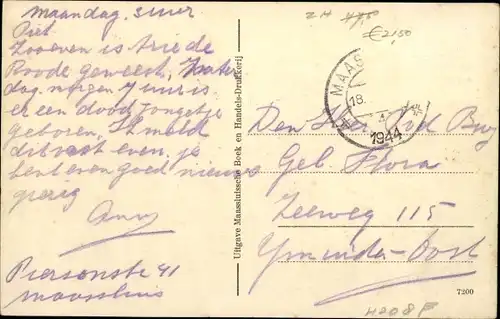 Maandag. 3 uur
Piet
Zooeven is trie de
Roode geweest, Zater
dag morgen 7 uur is
er een dood jongetje
geboren, Ik meld
dit vast even, je
bent even goed nieuws
gierig
Anny
Piersonstr 41
Maassluis
Uitgave Maassluissche Boek en Handels-Drukkerij
ZH
€2,50
MAAS
18.
4
1944
Den Heer
Geb. Flora
Zeeweg 115
Ymuiden-Oost
7200
4208F